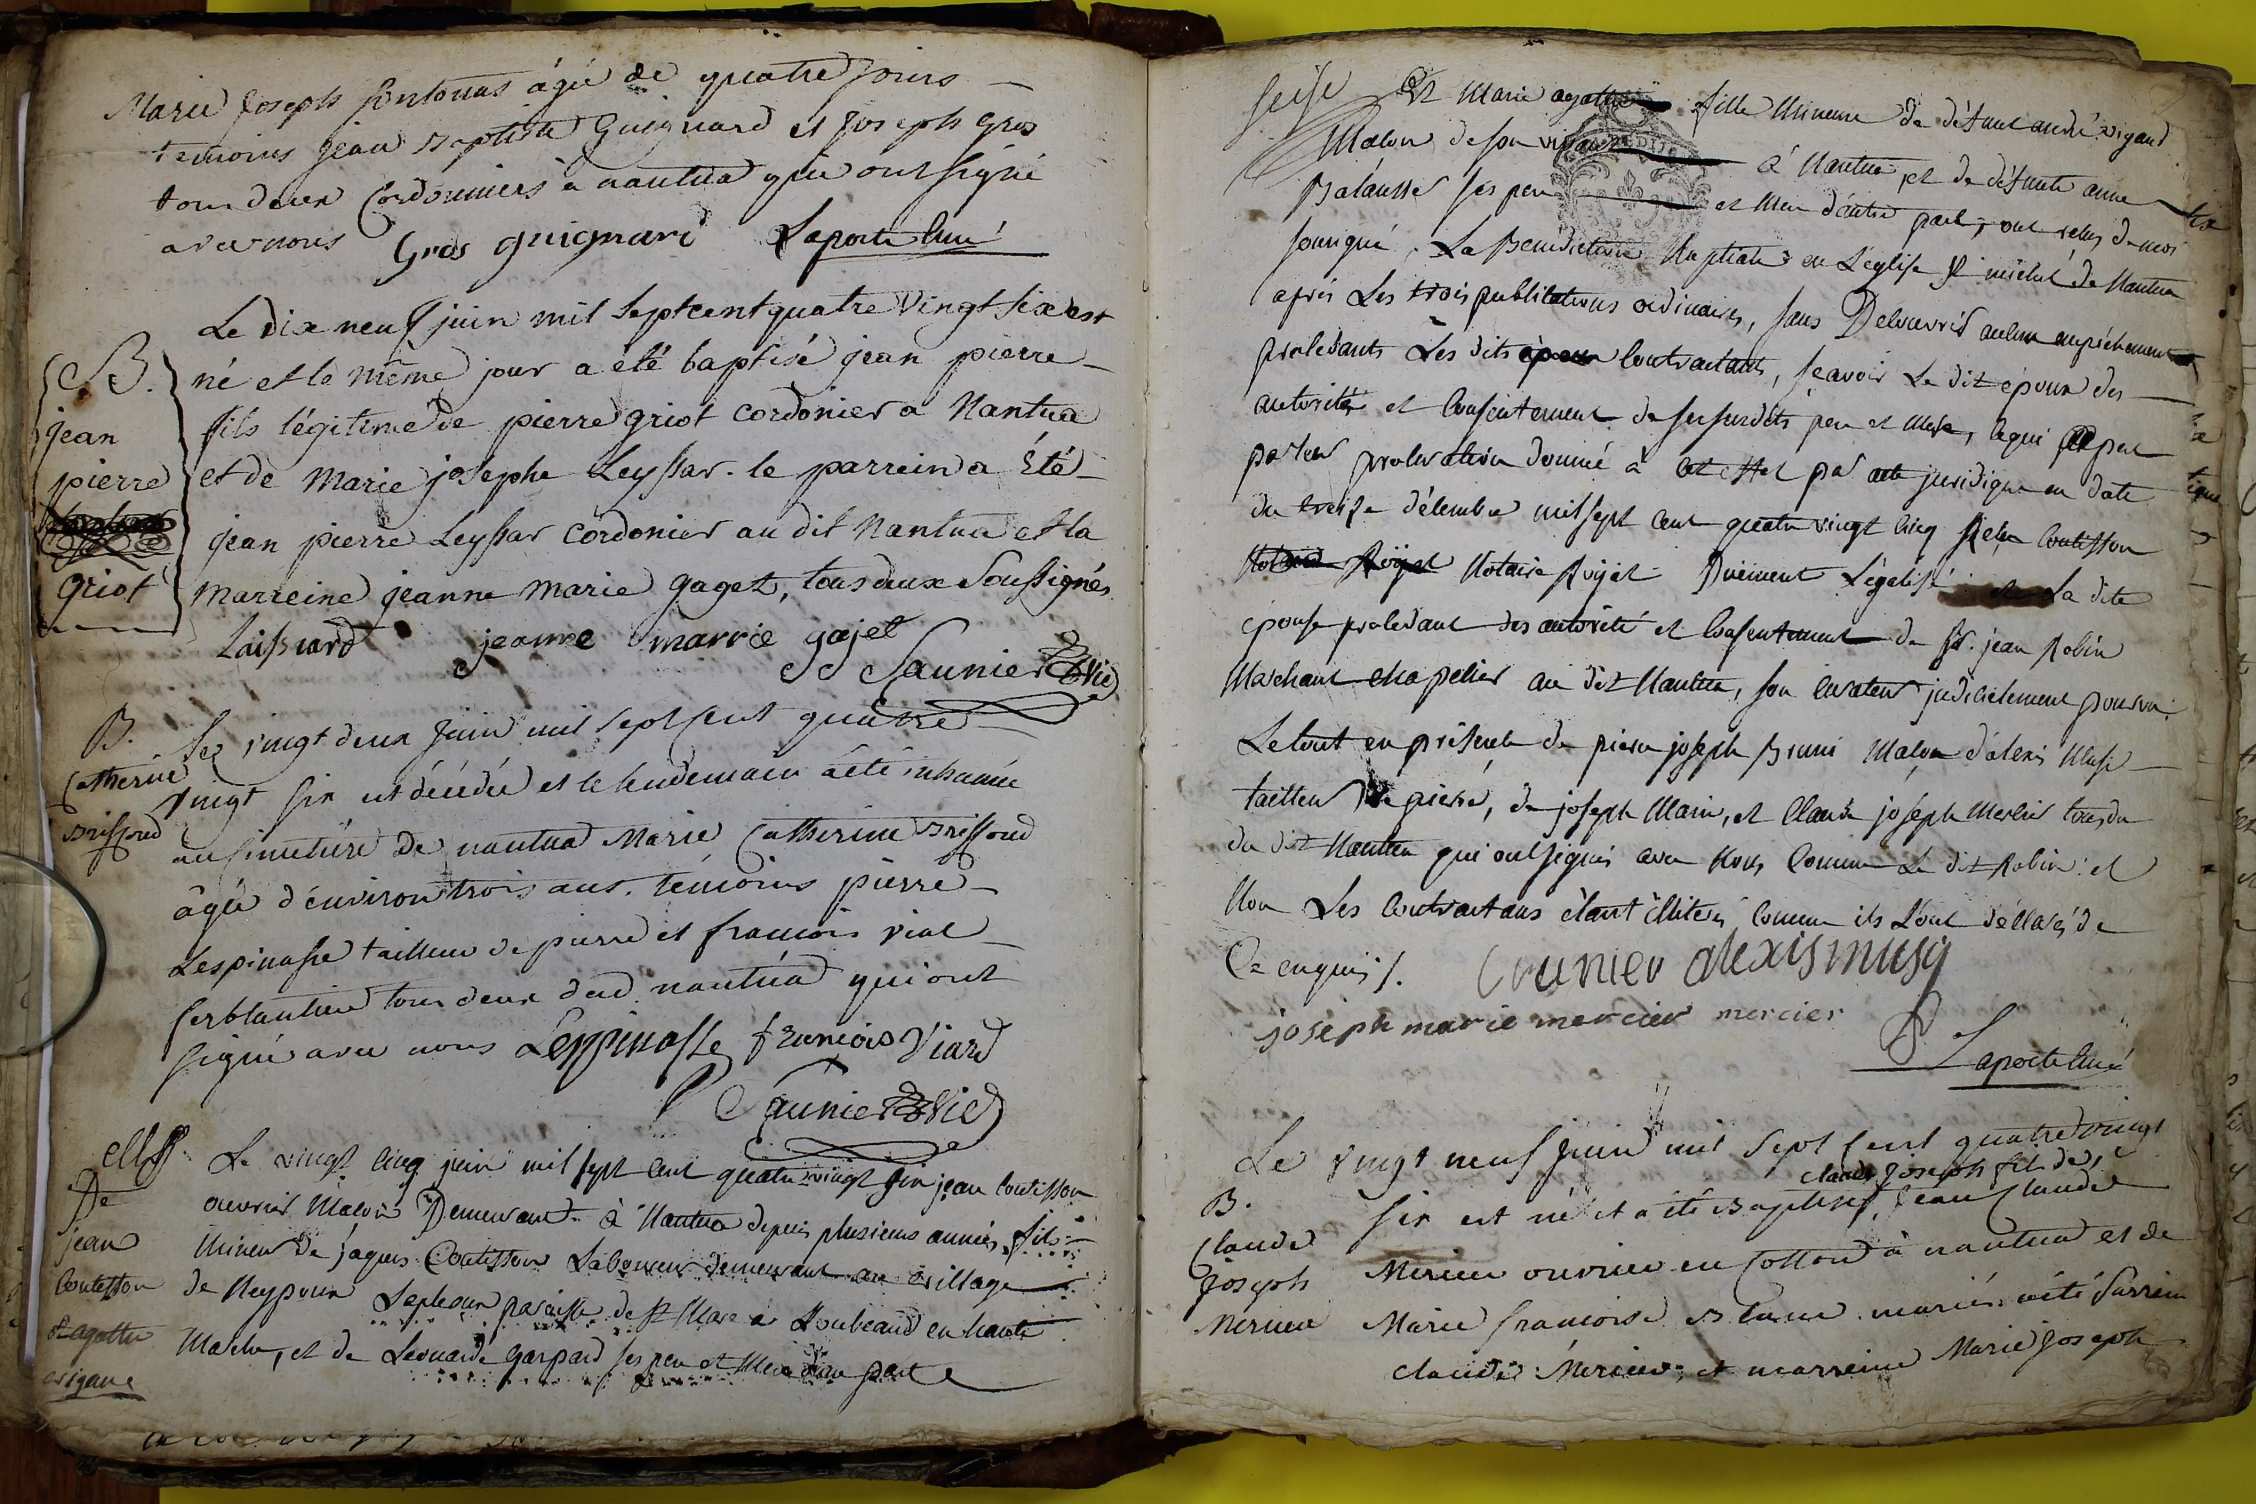 Marie Joseph fontonas âgée de quatre jours
temoins jean Baptiste Guignard et Joseph Gros
tous deux Cordonniers à nantua qui ont signé
avec nous Gros guignard Laporte Curé
Le dix neuf juin mil sept cent quatre vingt six est
né et le même jour a été baptisé jean pierre
fils légitime de pierre griot cordonier a Nantua
et de Marie josephe Leyssar. le parrein a été
jean pierre Leyssar cordonier au dit Nantua et la
marreine jeanne Marie gaget, tous deux Soussignés
Laissard jeanne marrie gajet
Saunier Vic
B.
jean
pierre
griot
Le vingt deux juin mil sept cent quatre
vingt six est décédée et le lendemain a été inhumée
au cimetière de nantua Marie Catherine Brissoud
âgée d'environ trois ans. témoins pierre
Lespinasse tailleur de pierre et francois vial
ferblantier tous deux dud. nantua qui ont
signé avec nous Lespinasse francois Viard
Saunier Vic
B.
Catherine
Brissoud
Le vingt cinq juin mil sept cent quatre vingt six jean Coutisson
ouvrier Maçon Demeurant à Nantua depuis plusieurs années, fils
Mineur de jaques Coutisson Laboureur demeurant au village
de paroisse de St Marc a Loubeaud en haute
Marche, et de Leonarde Gaspard ses pere et Mere d'une part
De
jean
Coutesson
et agathe
vigand
seise
Et Marie agathe fille Mineure de défunt andré vigand
Maçon de son vivant à Nantua, et de défunte anne
Balausse ses pere et Mere d'autre part, ont reçu de moi
soussigné, La Benediction Nuptiale en L'eglise St michel de Nantua
après Les trois publications ordinaires, sans Découvrir aucun empêchement
procédants Les dits Contractants, sçavoir Le dit époux des
autorité et Consentement de ses susdits pere et Mere, ce qui
par leur procuration donné à cet effet par acte juridique en date
du treize décembre mil sept cent quatre vingt cinq Coutisson
Notaire Royal Duement Légalisé et La dite
épouse procédant des autorité et Consentement de Sr. jean Robin
Marchant chapelier au dit Nantua, son curateur judiciellement pourvu.
Le tout en présence de pierre joseph Bruni Maçon d'alexis Musi
tailleur De pierre, de joseph Marie, et Claude joseph Mercier tous du
du dit Nantua qui ont signés avec Nous Comme Le dit Robin: et
Non Les Contractans étant illiteres comme ils L'ont déclaré de
Ce enquis /. alexis musy
joseph marie mercier mercier
Laporte Curé
Le vingt neuf juin mil sept cent quatre vingt
claude joseph fils de
six est né et a été Baptisé, jean Claude
Mercier ouvrier en Cotton à nantua et de
Marie francoise mariés. a été parrein
claude Mercier, et marreine Marie Joseph
B.
Claude
Joseph
Mercier